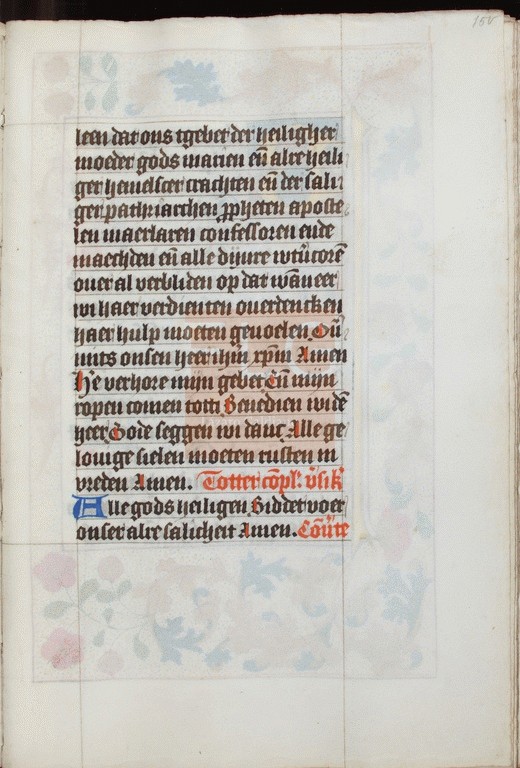 150
leen dat ons tgebet der heiligher
moeder gods marien eñ alre heili
ger hemelscer crachten eñ der sali
ger patriarchen ꝓpheten aposte
len maerlaren confessoren ende
maechden eñ alle dijnre wtũcorẽ
ouer al verbliden op dat wãneer
wi haer verdienten ouerdencken
haer hulp moeten geuoelen Oũ
mits onsen heer ihm̃ xpm̃ Amen
He verhore mijn gebet Eñ mijn
ropen comen totti Benedien wi dẽ
heer Gode seggen wi danc Alle ge
louige sielen moeten rusten in
vreden Amen. Totter cõpl̃: v̾sik̾
Alle gods heiligen Biddet voer
onser alre salicheit Amen. Cõu̾te